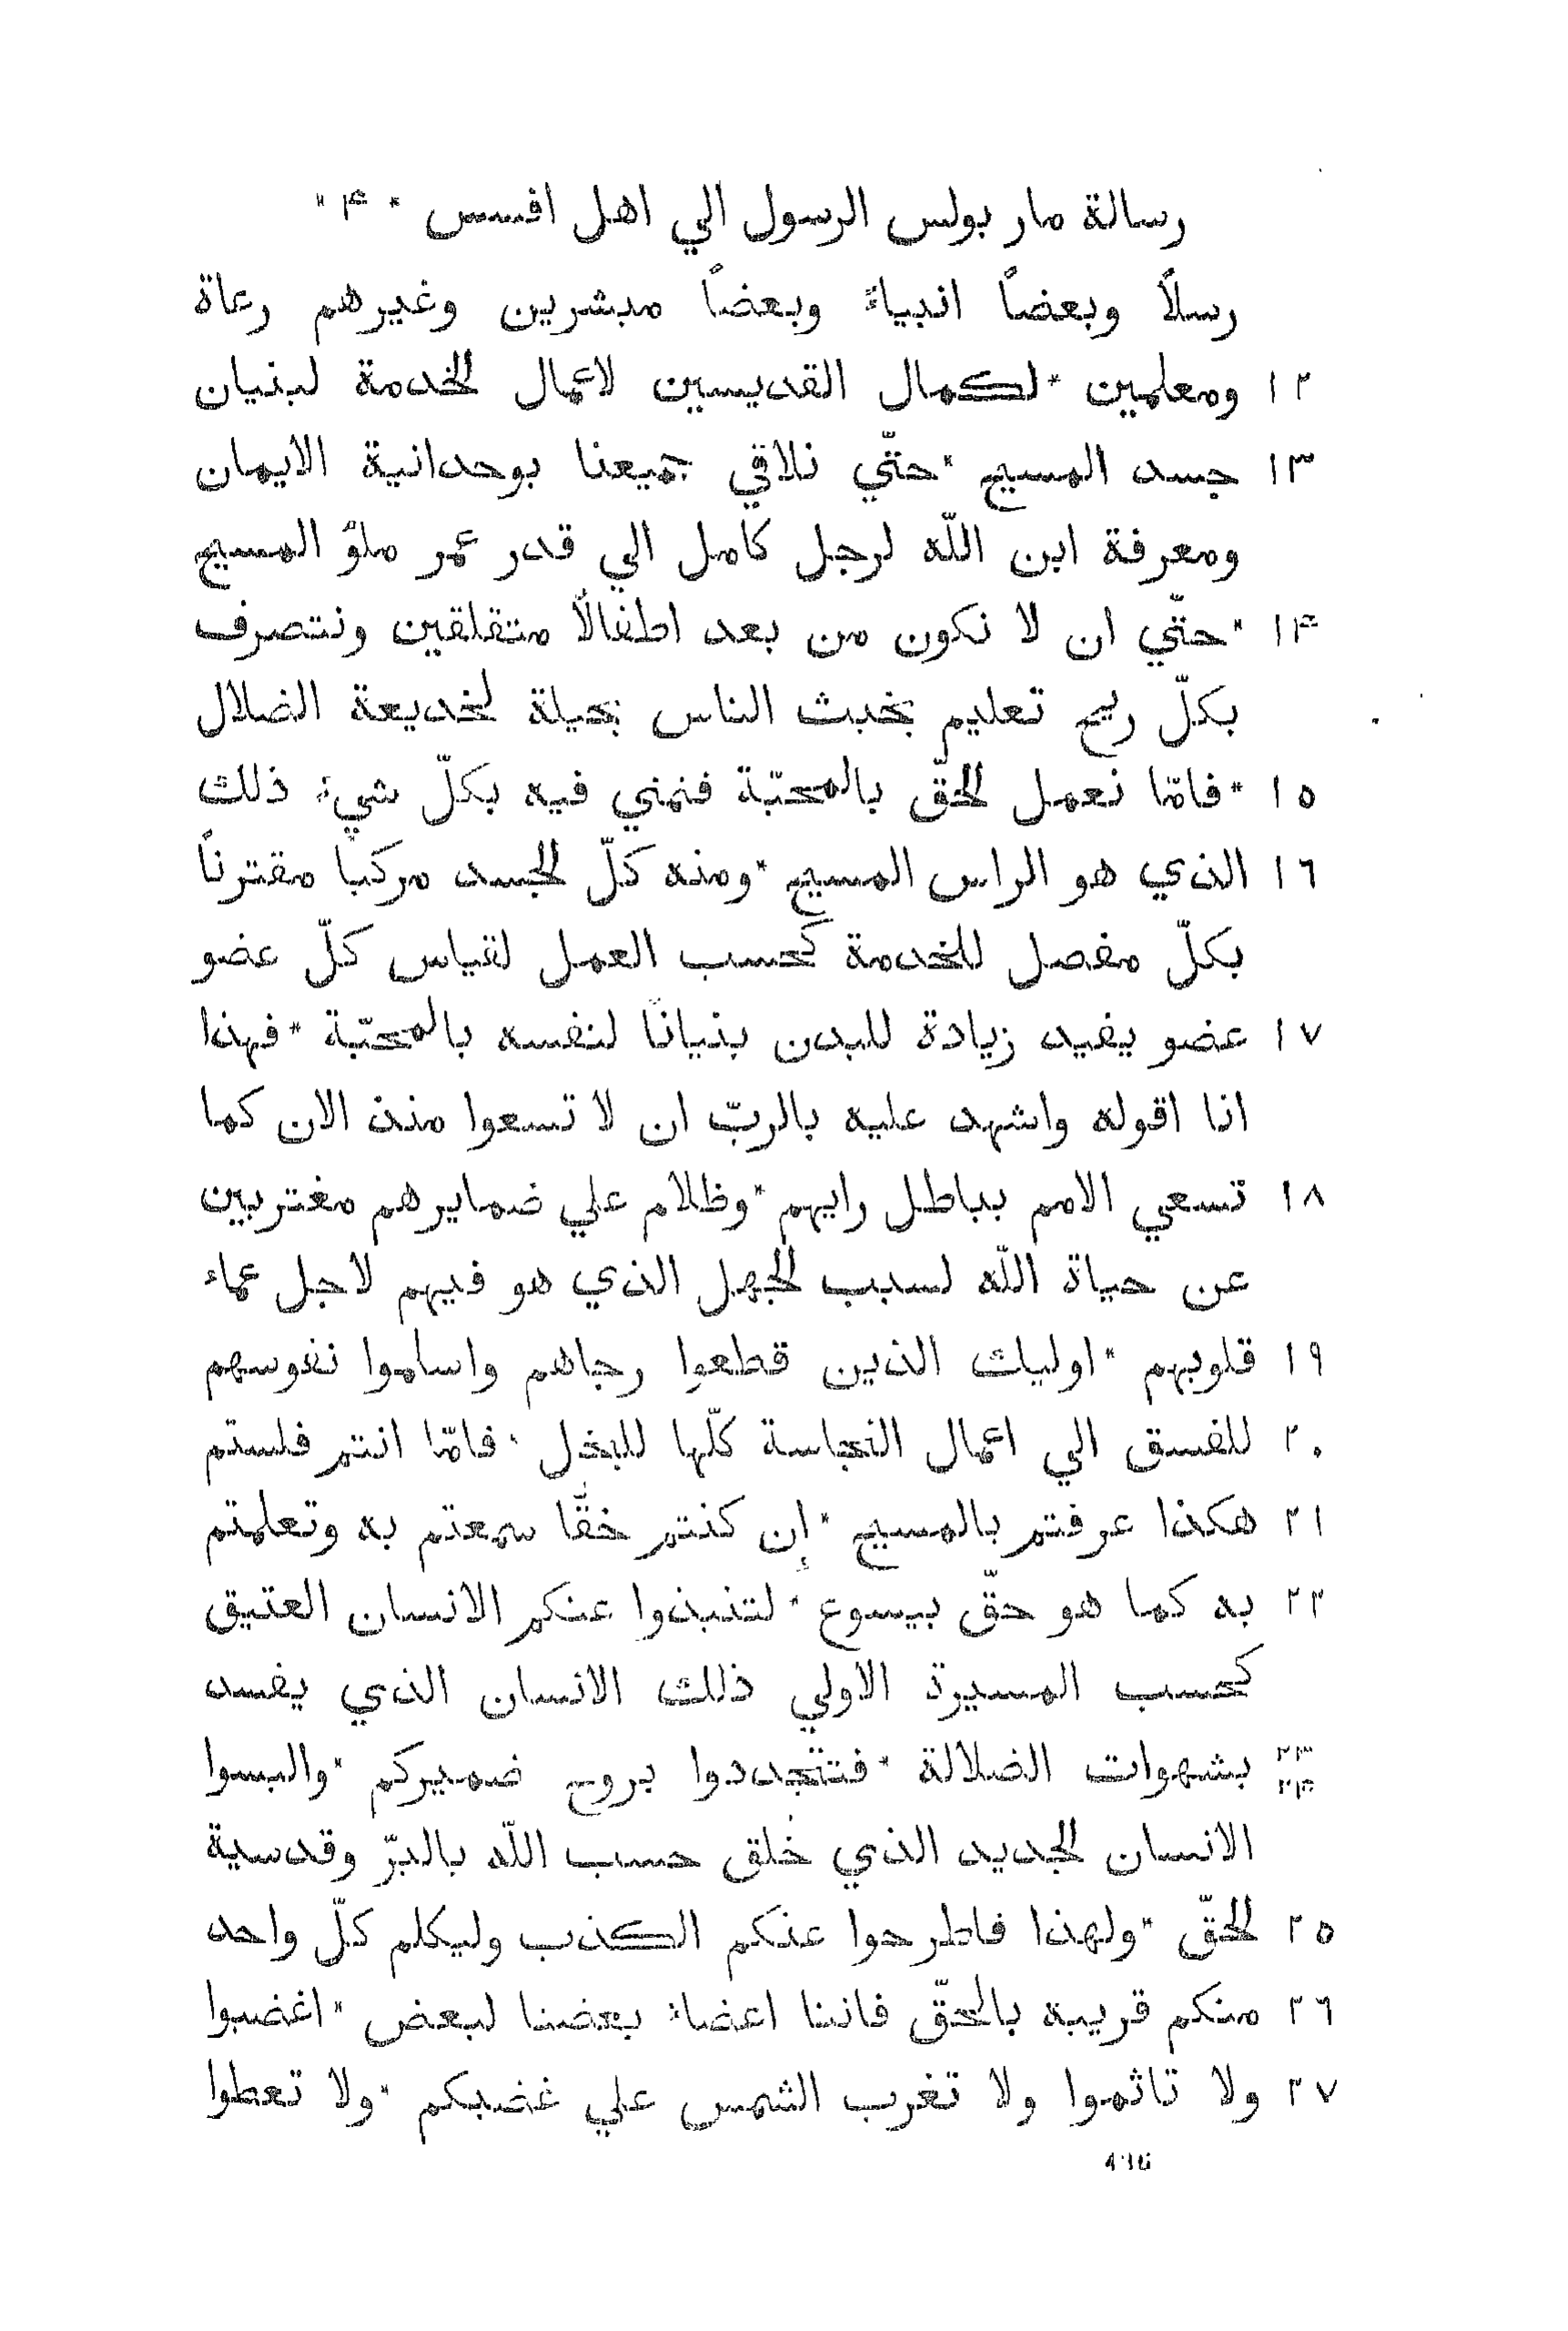 رسالة مار بولس الرسول الي اهل افسس * ۴ *
رسلاً وبعضاً انبياءً وبعضاً مبشرين وغيرهم رعاة
١٢ ومعلمين * لكمال القديسين لاعمال الخدمة لبنيان
١٣ جسد المسيح * حتّي نلاقي جميعنا بوحدانية الايمان
ومعرفة ابن اللّه لرجل كامل الي قدر عمر ملؤ المسيح
١۴ * حتّي ان لا نكون من بعد اطفالاً متقلقين ونتصرف
بكلّ ريح تعليم بخبث الناس بحيلة لخديعة الضلال
١٥ * فامّا نعمل الحقّ بالمحبّة فننمي فيه بكلّ شيء ذلك
١٦ الذي هو الراس المسيح * ومنه كلّ الجسد مركباً مقترناً
بكلّ مفصل للخدمة كحسب العمل لقياس كلّ عضو
١٧ عضو يفيد زيادة للبدن بنياناً لنفسه بالمحبّة * فهذا
انا اقوله واشهد عليه بالربّ ان لا تسعوا منذ الان كما
١٨ تسعي الامم بباطل رايهم * وظلام علي ضمايرهم مغتربين
عن حياة اللّه لسبب الجهل الذي هو فيهم لاجل عماء
١٩ قلوبهم * اوليك الذين قطعوا رجاهم واسلموا نفوسهم
٢٠ للفسق الي اعمال النجاسة كلّها للبخل * فامّا انتم فلستم
٢١ هكذا عرفتم بالمسيح * إن كنتم حقّاً سمعتم به وتعلمتم
٢٢ به كما هو حقّ بيسوع * لتنبذوا عنكم الانسان العتيق
كحسب المسيرة الاولي ذلك الانسان الذي يفسد
٢٣ ٢۴ بشهوات الضلالة * فتتجددوا بروح ضميركم * والبسوا
الانسان الجديد الذي خُلق حسب اللّه بالبرّ وقدسية
٢٥ الحقّ * ولهذا فاطرحوا عنكم الكذب وليكلم كلّ واحد
٢٦ منكم قريبه بالحقّ فاننا اعضاء بعضنا لبعض * اغضبوا
٢٧ ولا تاثموا ولا تغرب الشمس علي غضبكم * ولا تعطوا